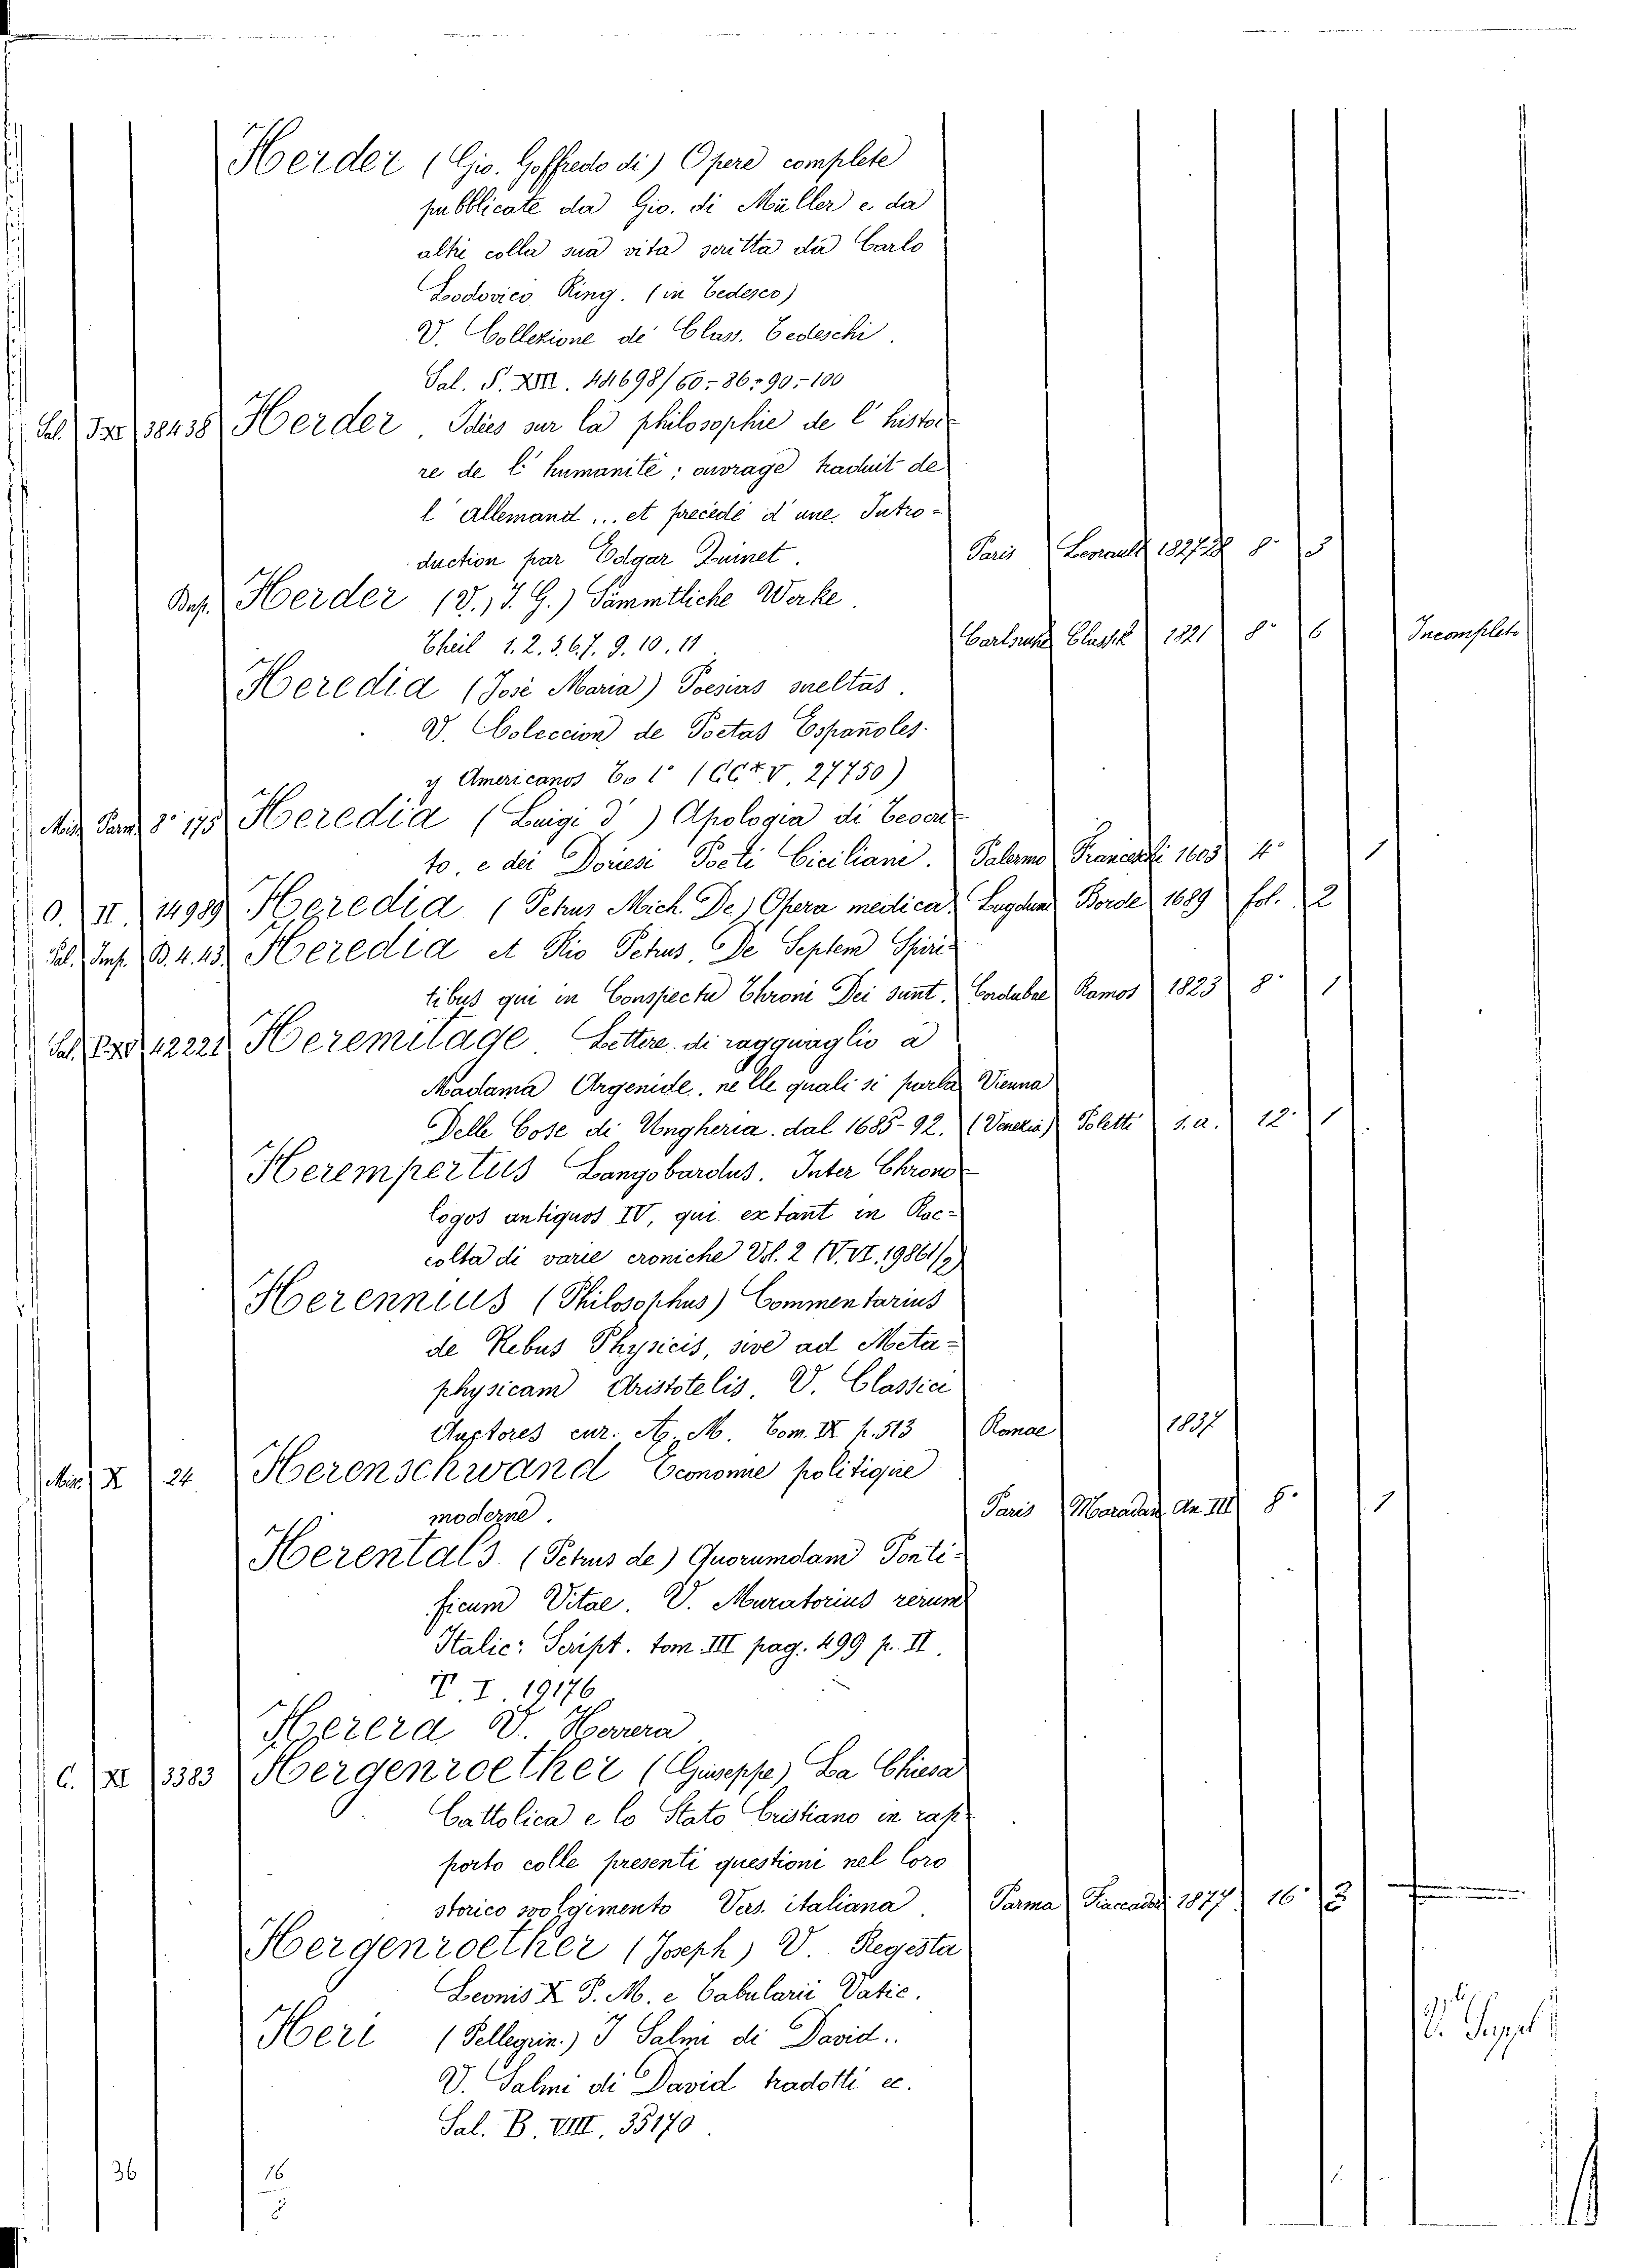 Herder (Gio. Goffredo di) Opere complete
pubblicate da Gio. di Müller e da
altri colla sua vita scritta da Carlo
Lodovico Ring. (in Tedesco)
V. Collezione de' Class. Tedeschi.
Sal. P. XIII. 44698/60-86-90-100
Sal. 38438 Herder. Idées sur la philosophie de l'histoi-
re de l'humanité; ouvrage traduit de
l'allemand... et precédé d'une Intro-
duction par Edgar Quinet. Paris Levrault 1827-28 8° 3
Herder (V., J. G.) Sämmtliche Werke.
Theil 1. 2. 5. 6. 7. 9. 10. 11. Carlsruhe 1821 8° 6 Incompleto
Heredia (José Maria) Poesias sueltas.
V. Coleccion de Poetas Españoles
y Americanos To 1° 27750)
Misc. Parm. 8° 175 Heredia (Luigi d') Apologia di Teocri-
to, e dei Doriesi Poeti Ciciliani. Palermo Franceschi 1603 4° 1
O. II. 14989 Heredia (Petrus Mich. De) Opera medica. Lugduni Borde 1689 fol. 2
Pal. Imp. B. 4. 43. Heredia et Rio Petrus. De Septem Spiri-
tibus qui in Conspectu Throni Dei sunt. Cordubae Ramos 1823 8° 1
Sal. 42221 Heremitage. Lettere di ragguaglio a
Madama Argenide, nelle quali si parla Vienna
Delle Cose di Ungheria. dal 1685-92. (Venezia) Poletti s. a. 12° 1
Herempertus Langobardus. Inter Chrono-
logos antiquos IV, qui extant in Rac-
colta di varie croniche Vol. 2 (V. VI. 19861/2)
Herennius (Philosophus) Commentarius
de Rebus Physicis, sive ad Meta-
physicam Aristotelis. V. Classici
Auctores cur. A. M. Tom. IX p. 513 Romae 1837
Misc. X 24 Herenschwand Economie politique
moderne. Paris Maradan An III 8° 1
Herentals. (Petrus de) Quorumdam Ponti-
ficum Vitae. V. Muratorius rerum
Italic: Script. tom III pag. 499 p. II.
T. I. 19176
Herera V. Herrera
C. XI 3383 Hergenroether (Giuseppe) La Chiesa
Cattolica e lo Stato Cristiano in rap-
porto colle presenti questioni nel loro
storico svolgimento Vers. italiana. Parma Fiaccadori 1877 16° 3
Hergenroether (Joseph) V. Regesta
Leonis X P. M. e Tabularii Vatic.
Heri (Pellegrin.) I Salmi di David.. V. Suppl
V. Salmi di David tradotti ec.
Sal. B. VIII. 35170.
36 16
3